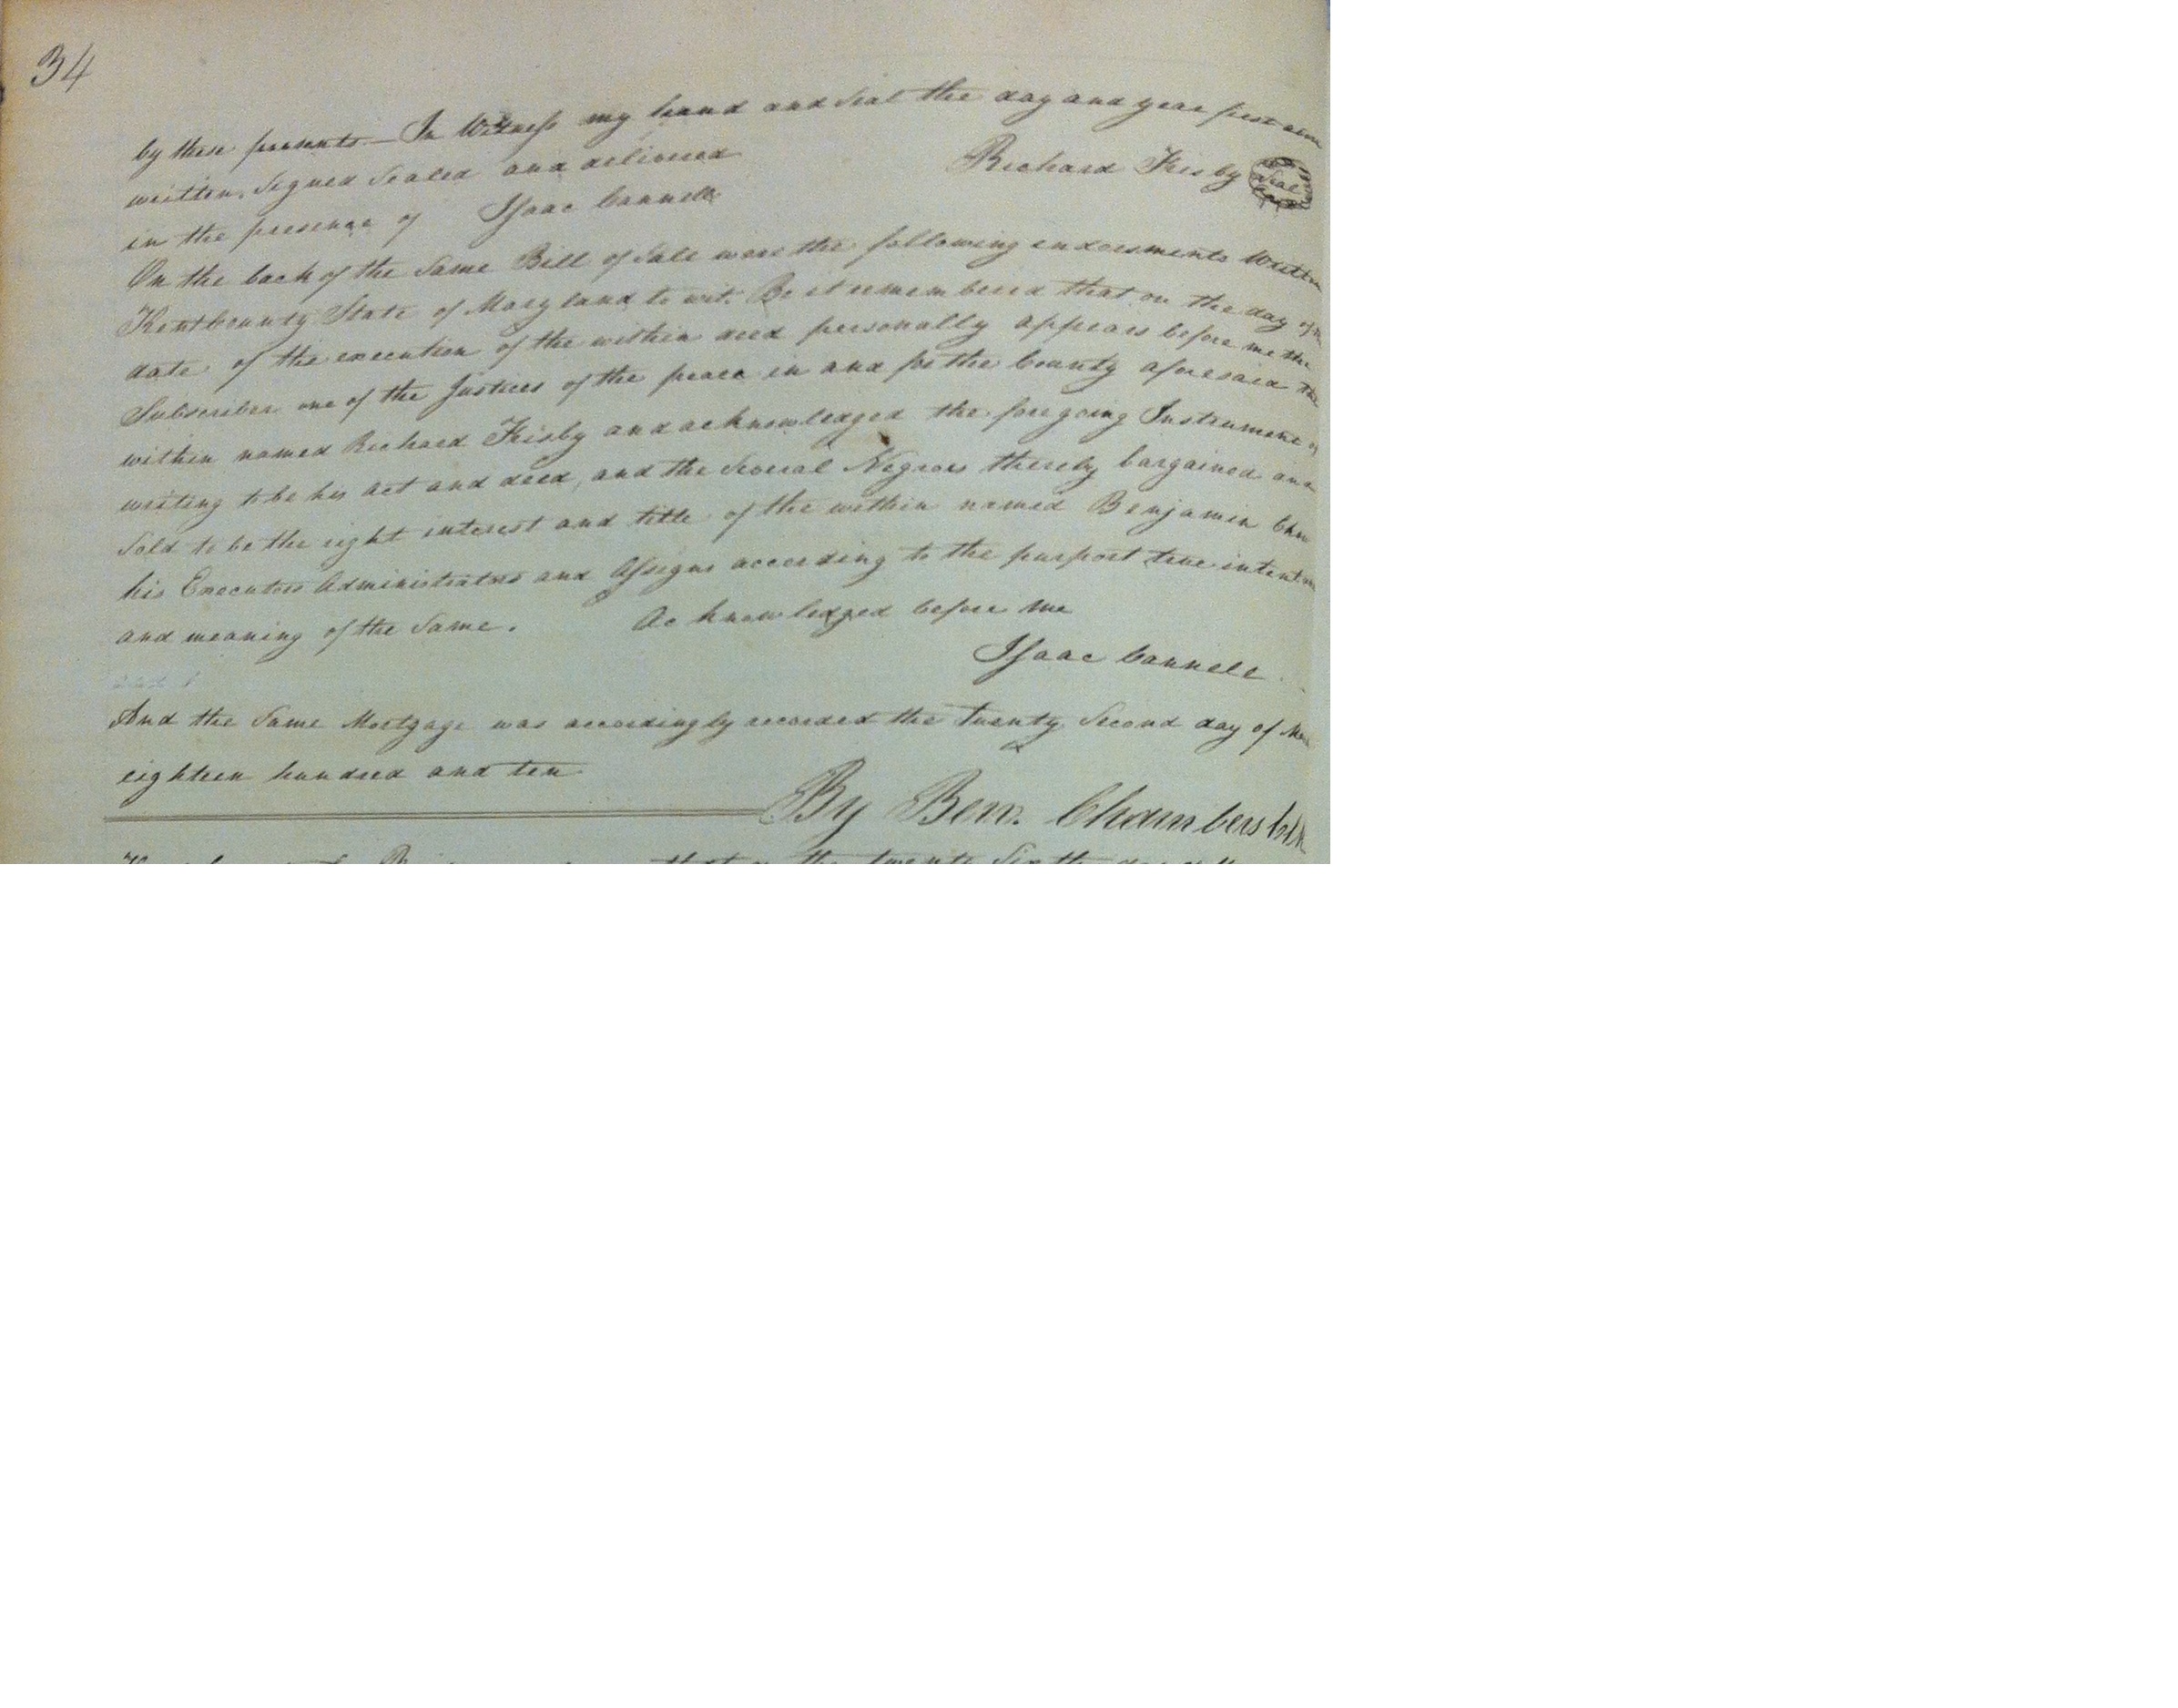 34
by these presents — In Witness my hand and Seal the day and year first
written. Signed Sealed and delivered
Richard Frisby Seal
in the presence of Isaac Cannell
On the back of the Same Bill of Sale were the following endorsments Written
Kent County State of Maryland to wit. Be it remembered that on the day of
date of the execution of the within deed personally appears before me the
Subscriber one of the Justices of the peace in and for the County aforesaid the
within named Richard Frisby and acknowledged the foregoing Instrument of
writing to be his act and deed, and the Several Negroes thereby bargained and
Sold to be the right interest and title of the within named Benjamin
his Executors Administrators and Assigns according to the purport true intent
and meaning of the Same. Acknowledged before me
Isaac Cannell
And the Same Mortgage was accordingly recorded the Twenty Second day of
eighteen hundred and ten
By Ben. Chambers Clk
that on the twenty Sixth day of